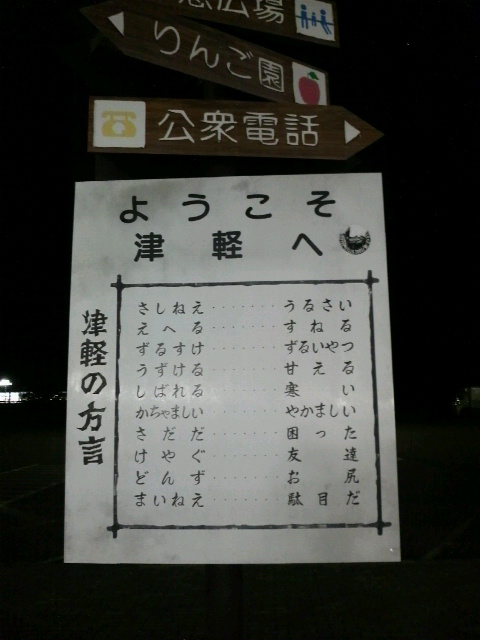 広場
りんご園
公衆電話
ようこそ
津軽へ
津軽の方言
さしねえ・・・・・・・うるさい
えへる・・・・・・・すねる
ずるすけ・・・・・・・ずるいやつ
うずける・・・・・・・甘える
しばれる・・・・・・・寒い
かちゃましい・・・・・・・やかましい
さだだ・・・・・・・困った
けやぐ・・・・・・・友達
どんず・・・・・・・お尻
まいねえ・・・・・・・駄目だ